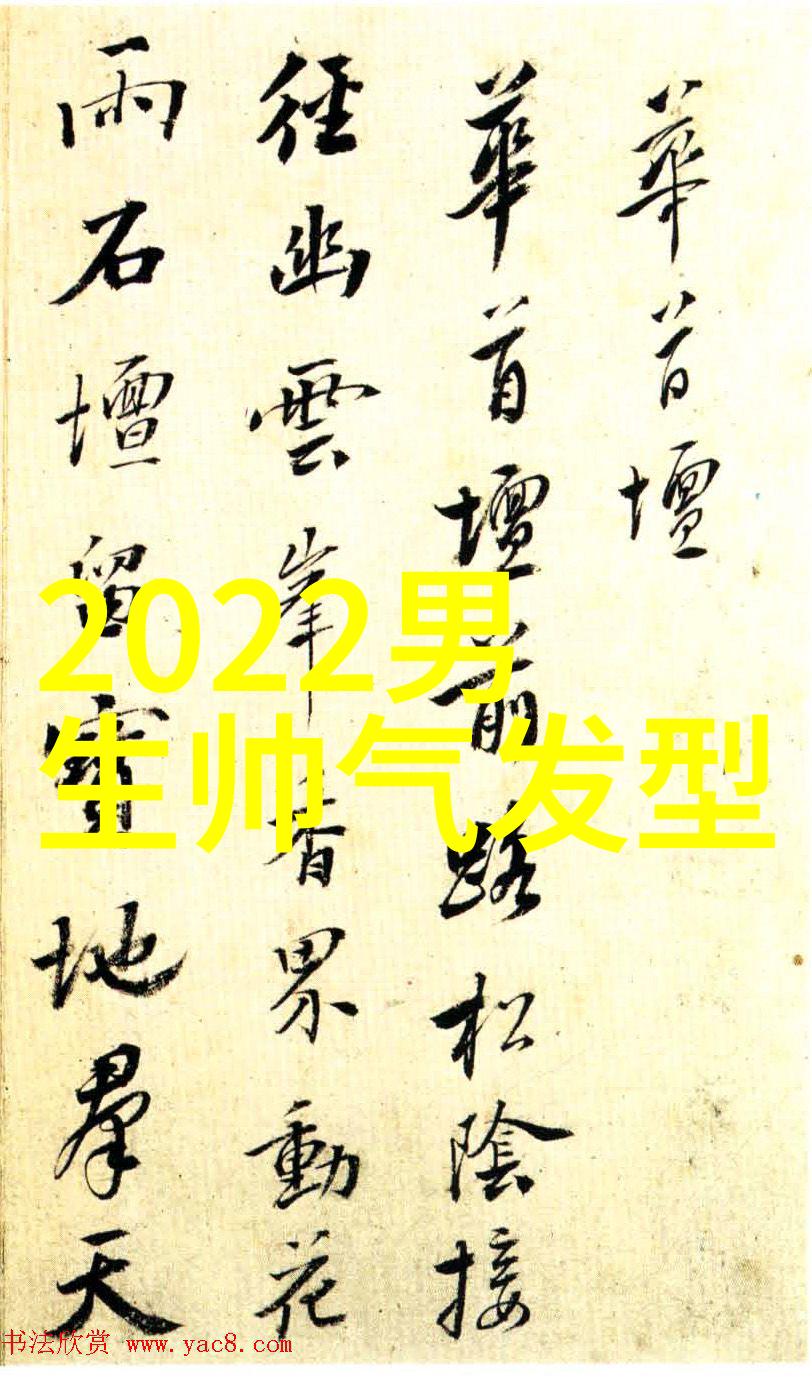 華首壇
華首壇前路松陰接
徑幽雲峯香界動花
雨石壇留寶地羣天
2022男
生帅气发型
书法欣赏 www.yac8.com